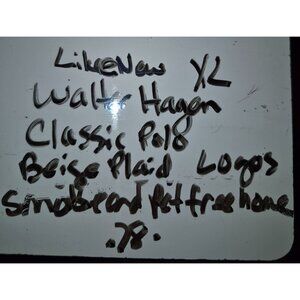 Like New XL
Walter Hagen
Classic Polo
Beige Plaid Logos
Smoke and Pet free home
.78.